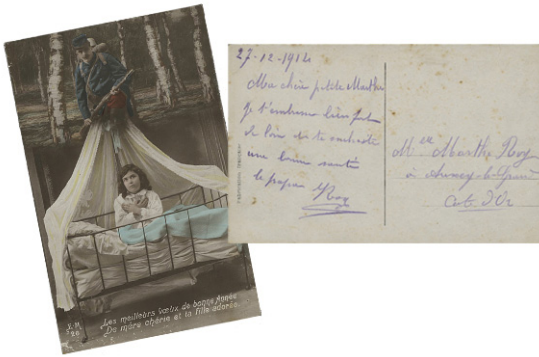 Les meilleurs vœux de bonne Année
De mère chérie et ta fille adorée.
27-12-1914
Ma chère petite Marthe
Je t'embrasse bien fort
de loin et te souhaite
une bonne santé
le papa Roy
Melle Marthe Roy
à
Côte d'Or